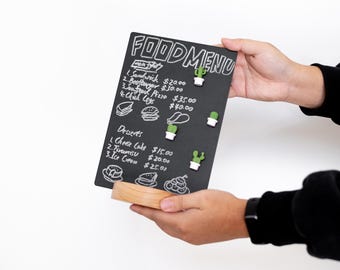 FOOD MENU
Main Dishes
1. Sandwich $20.00
2. Beefburger $30.00
3. Seafood Pizza $35.00
4. Chick Legs $40.00
Desserts
1. Cheese Cake $15.00
2. Tiramisu $20.00
3. Ice Cream $25.00